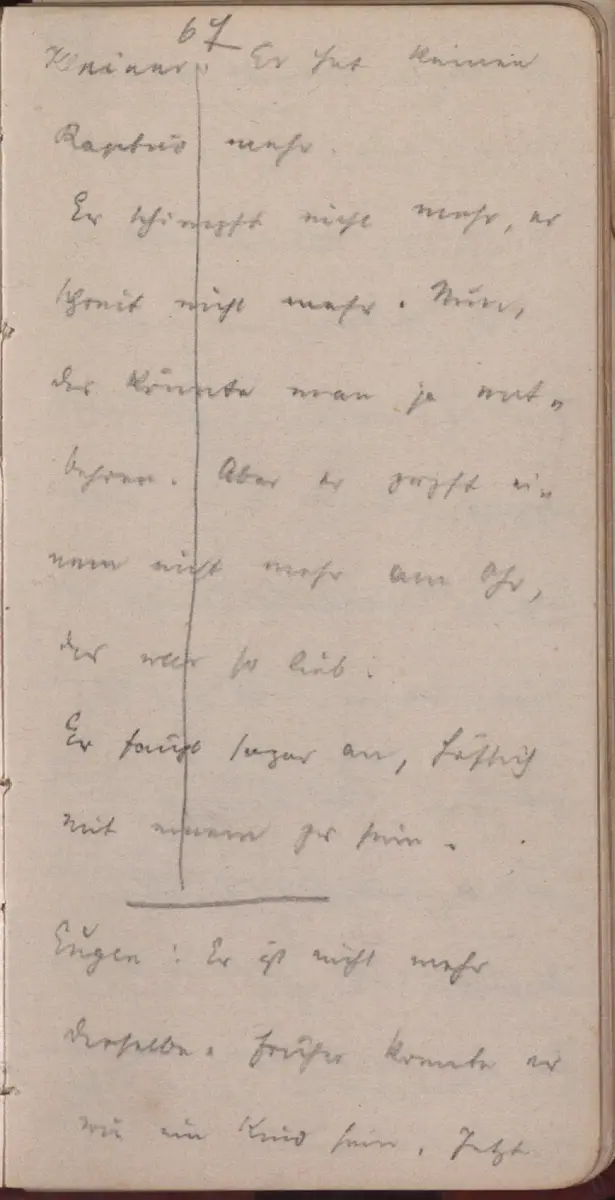 67
Kleiner: Er hat keinen
Raptus mehr.
Er schimpft nicht mehr, er
schreit nicht mehr. Nun,
das könnte man ja ent-
behren. Aber er zupft ei-
nem nicht mehr am Ohr,
das war so lieb.
Er fängt sogar an, höflich
mit einem zu sein.
Eugen: Er ist nicht mehr
derselbe. Früher konnte er
wie ein Kind sein. Jetzt